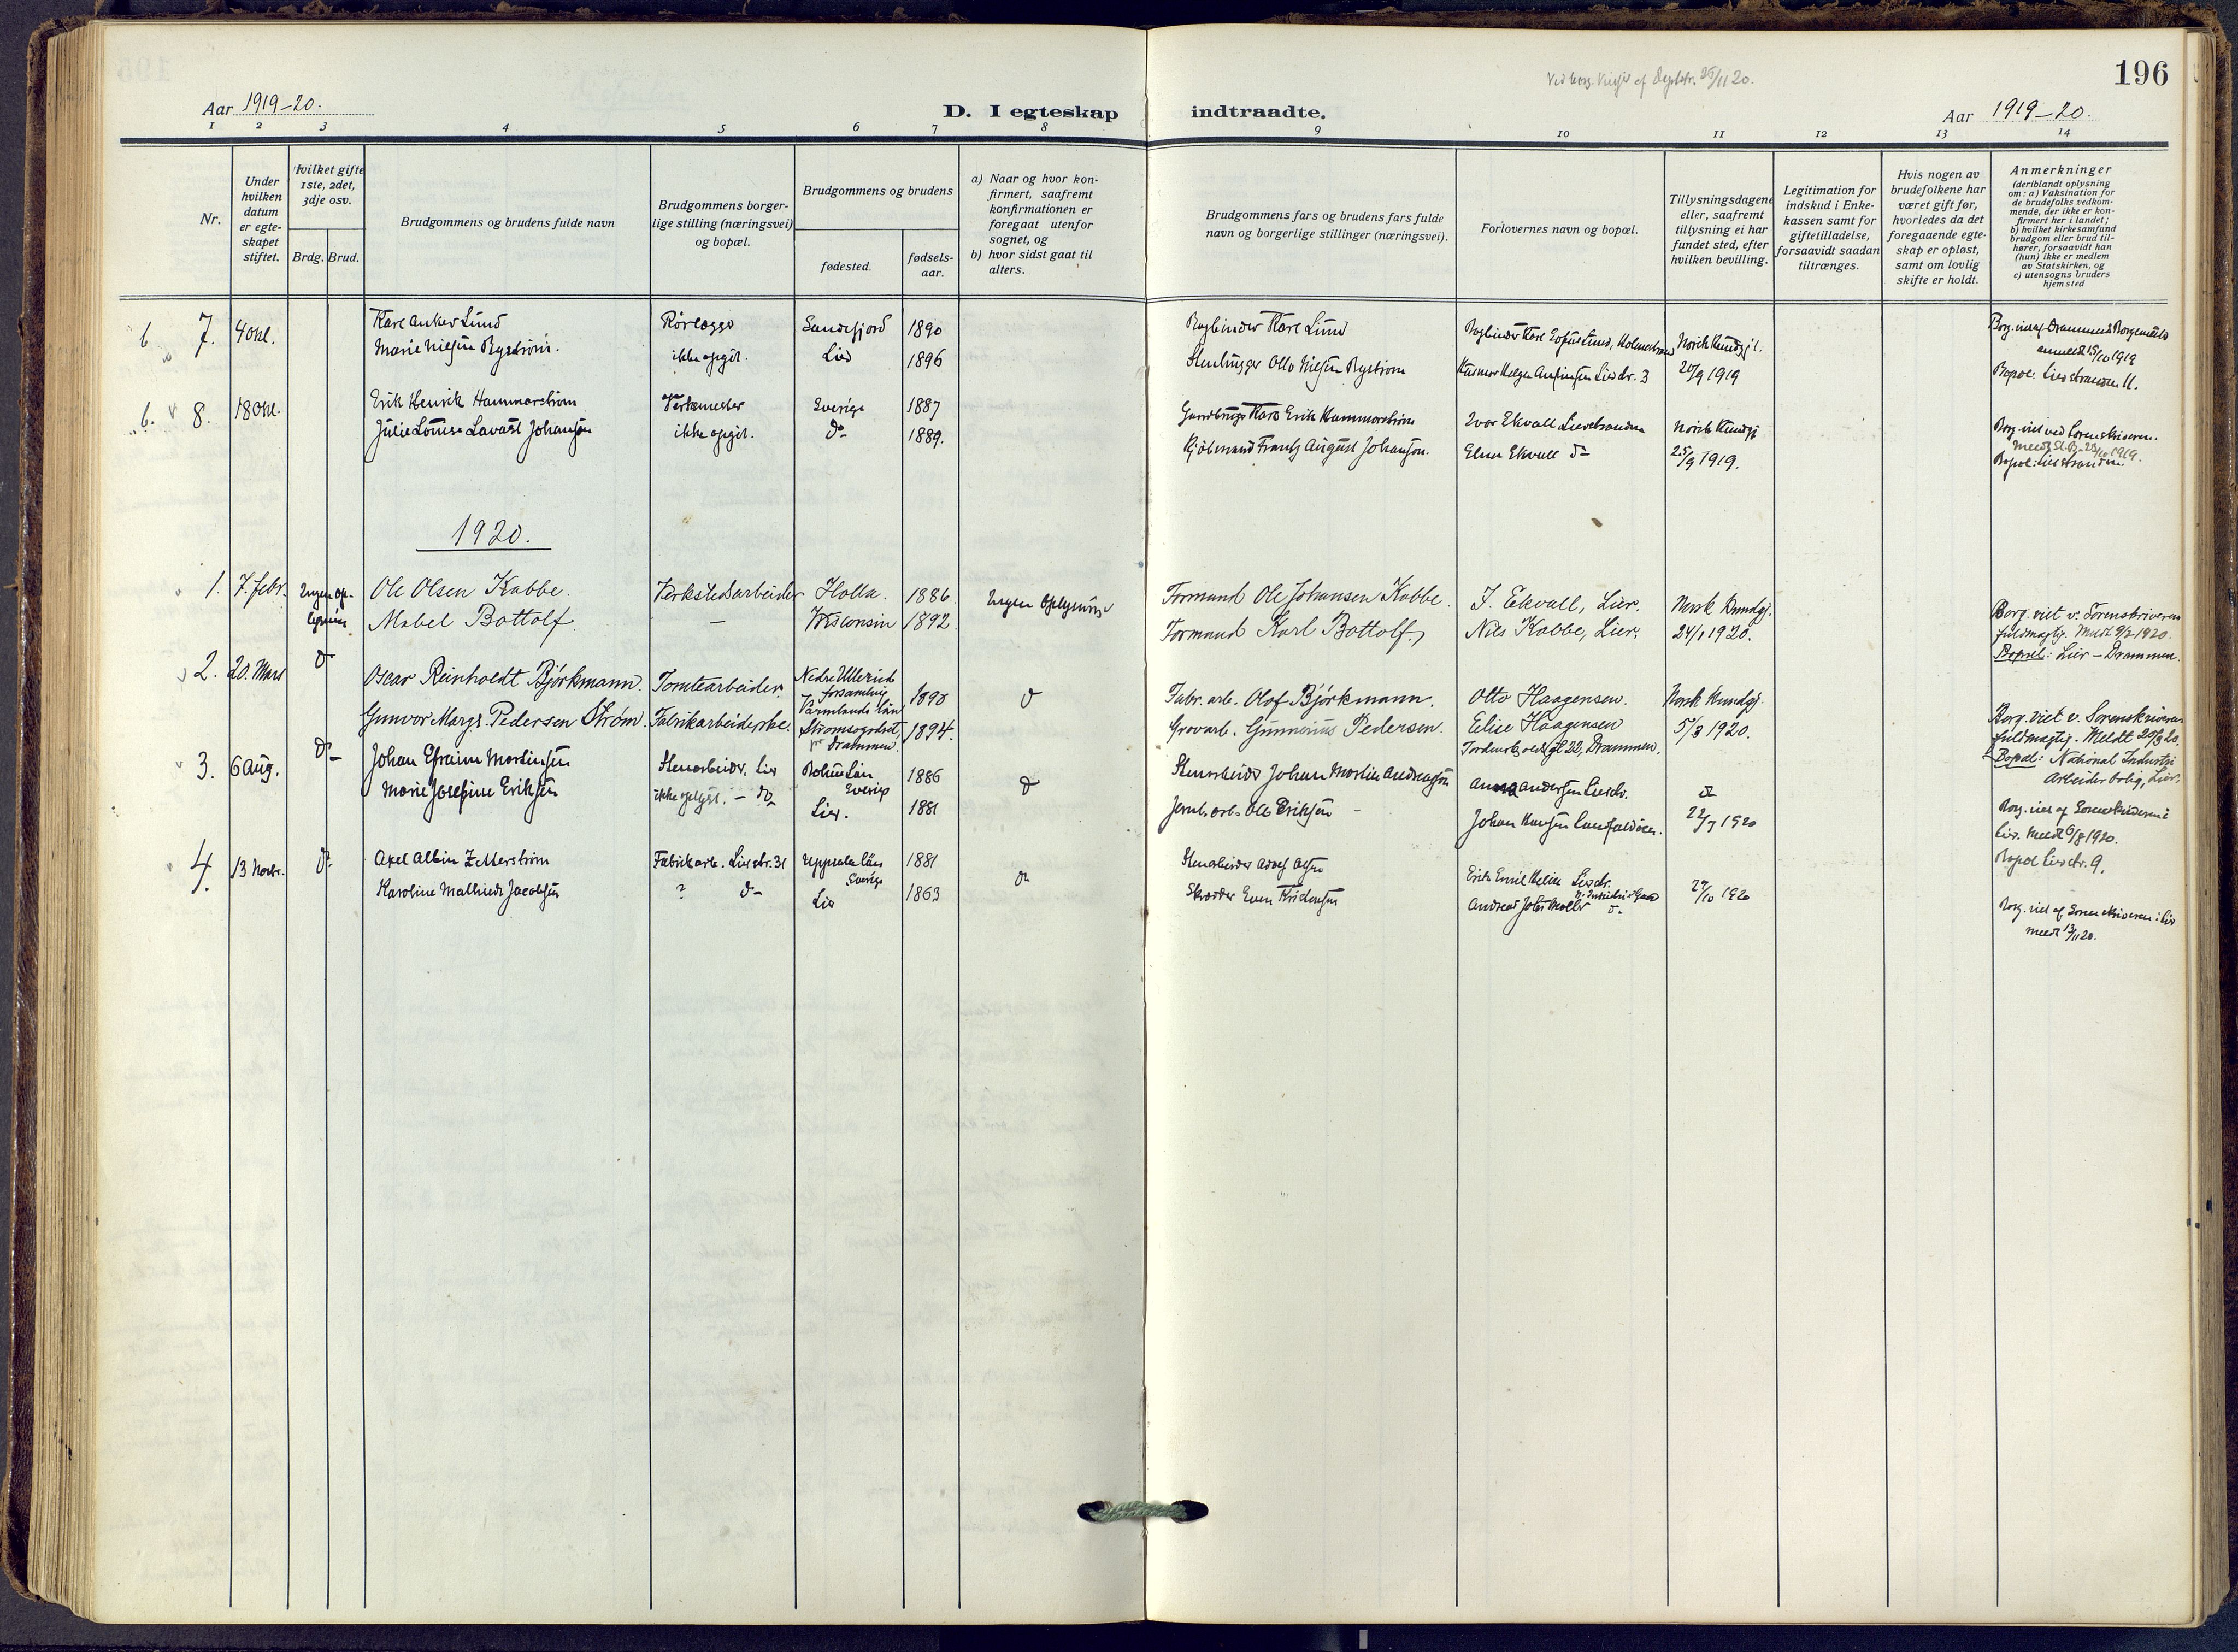 196
Aar 1919-20.
D. I egteskap indtraadte.
Aar 1919-20.
1 2 3 4 5 6 7 8 9 10 11 12 13 14
Nr.
Under hvilken datum er egteskapet stiftet.
Hvilket gifte 1ste, 2det, 3dje osv.
Brdg. Brud.
Brudgommens og brudens fulde navn
Brudgommens borgerlige stilling (næringsvei) og bopæl.
Brudgommens og brudens
fødested.
fødselsaar.
a) Naar og hvor konfirmert, saafremt konfirmationen er foregaat utenfor sognet, og
b) hvor sidst gaat til alters.
Brudgommens fars og brudens fars fulde navn og borgerlige stillinger (næringsvei).
Forlovernes navn og bopæl.
Tillysningsdagene eller, saafremt tillysning ei har fundet sted, efter hvilken bevilling.
Legitimation for indskud i Enkekassen samt for giftetilladelse, forsaavidt saadan tiltrænges.
Hvis nogen av brudefolkene har været gift før, hvorledes da det foregaaende egteskap er opløst, samt om lovlig skifte er holdt.
Anmerkninger
(deriblandt oplysning om: a) Vaksination for de brudefolks vedkommende, der ikke er konfirmert her i landet; b) hvilket kirkesamfund brudgom eller brud tilhører, forsaavidt han (hun) ikke er medlem av Statskirken, og c) utensogns bruders hjemsted
7. 4 okt. Karl Anker Lund Rørlægge Sandefjord 1890 Bogbinder Karl Lund
Marie Nilsen Rystrøm. ikke opgit. Lier 1896 Stenhugger Otto Nilsen Rystrøm 20/9 1919
anmeldt 15/10 1919
Bopæl: Lierstranden 11.
8. 18 okt. Erik Henrik Hammarström Verksmester Sverige 1887 Gaardbruger Karl Erik Hammarström Ivar Ekvall Lierstranden Norsk Kundgj
Julie Louise Lavast Johansson ikke opgit. do 1889. Kjøbmand Frantz August Johansson. Elna Ekvall do 25/9 1919.
Borg. viet ved Sorenskriveren.
Bopæl: Lierstranden.
1920.
1. 7. febr. Ingen oplysning Ole Olsen Kabbe. Verkstedarbeider Holla. 1886. Ingen Oplysning Formand Ole Johansen Kabbe. J. Ekvall, Lier. Norsk Kundgj.
Mabel Bottolf. — Wisconsin 1892. Formand Karl Bottolf, Nils Kabbe, Lier. 24/1 1920.
Borg. viet v. Sorenskriverens
fuldmægtig. Meldt 9/2 1920.
Bopæl: Lier – Drammen.
2. 20. Mars do Oscar Reinholdt Björkmann. Tomtearbeider. Nedre Ullerud forsamling Värmlands län 1890 do Fabr. arb. Olof Björkmann. Otto Haagensen. Norsk Kundgj.
Gunvor Margr. Pedersen Strøm. Fabrikarbeiderske. Strømsgodset, pr Drammen. 1894. Grovarb. Gunnerius Pedersen. Elise Haagensen 5/3 1920.
Tordenskjoldsgt. 22, Drammen.
Borg. viet v. Sorenskriverens
fuldmægtig. Meldt 20/3 20.
Bopæl: National Industri
Arbeiderbolig, Lier.
3. 6 Aug. do Johan Efraim Martinsen Stenarbeider, Lier Bohus Län Sverige 1886 do Stenarbeider Johan Martin Andreassen Anna Andersen Lierstr. do
Marie Josefine Eriksen ikke oplyst. – do Lier. 1881 Jernb. arb. Ole Eriksen 22/7 1920
Borg. viet af Sorenskriveren i
Lier. Meldt 6/8 1920.
Bopæl Lierstr. 9.
4. 13 Novbr. do Axel Albin Zetterström Fabrikarb. Lierstr. 31 Uppsala län Sverige 1881 do
Karoline Mathilde Jacobsen ? do Lier 1863 Skrædder Even Kristensen 27/10 1920
Borg. viet af Sorenskriveren i Lier
meldt 13/11 20.